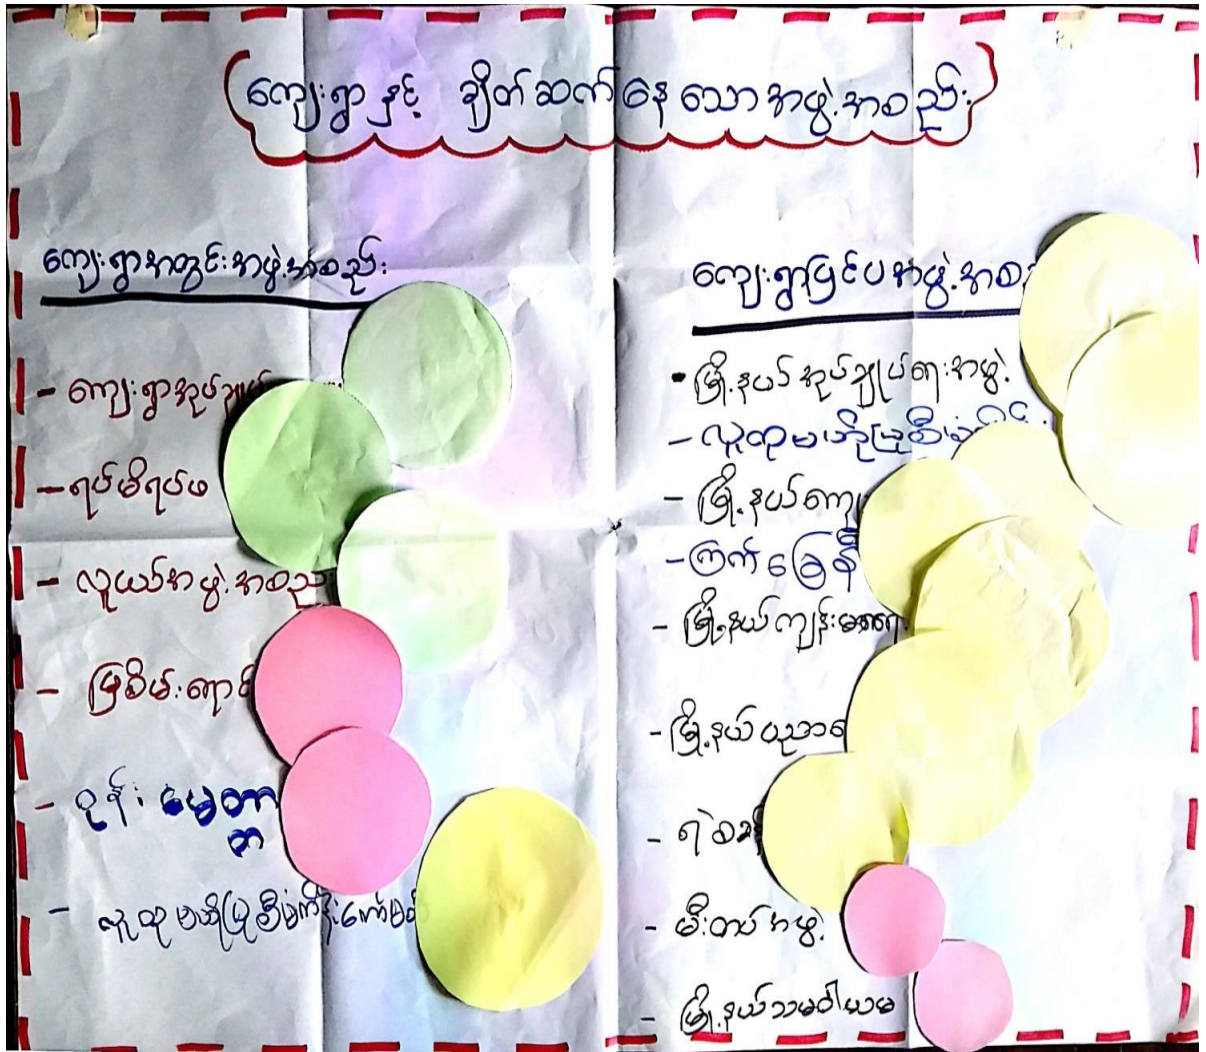 ကျေးရွာနှင့် ချိတ်ဆက်နေသောအဖွဲ့အစည်း
ကျေးရွာအတွင်းအဖွဲ့အစည်း
- ကျေးရွာအုပ်ချုပ်
- ရပ်မိရပ်ဖ
- လူငယ်အဖွဲ့အစည်း
- မြစိမ်းရောင်
- ဇုန်းမေတ္တာ
- လူထုဗဟိုပြုစီမံကိန်းကော်မတီ
ကျေးရွာပြင်ပအဖွဲ့အစည်း
- မြို့နယ်အုပ်ချုပ်ရေးအဖွဲ့
- လူထုဗဟိုပြုစီမံကိန်း
- မြို့နယ်ကျေး
- ကြက်ခြေနီ
- မြို့နယ်ကျန်းမာရေး
- မြို့နယ်ပညာရေ
- ရဲစခန်း
- မီးသတ်အဖွဲ့
- မြို့နယ်သမဝါယမ